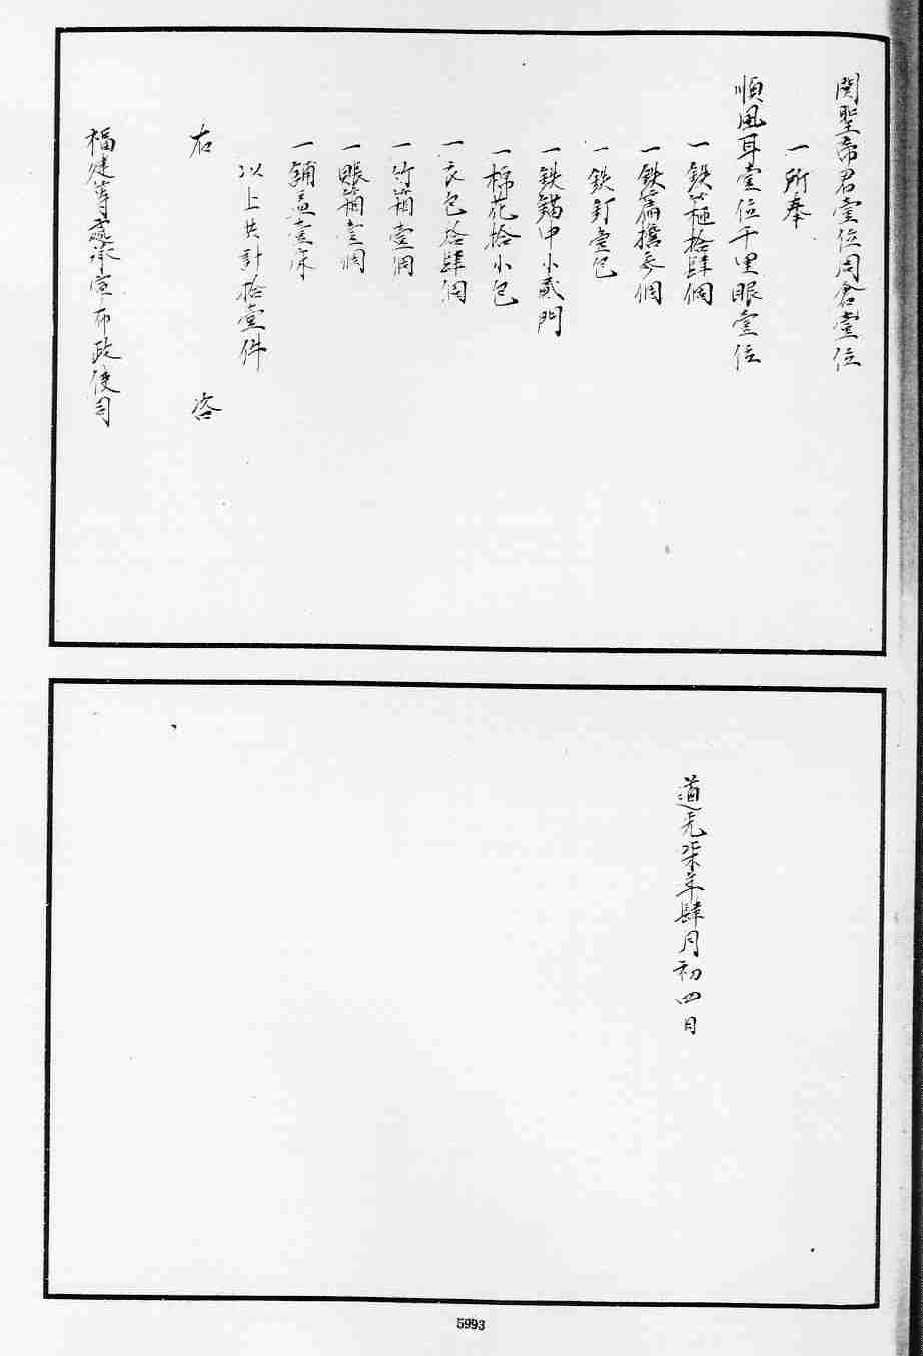 関聖帝君壹位周倉壹位
一所奉
順風耳壹位千里眼壹位
一鉄箍拾肆個
一鉄 叁個
一鉄釘壹包
一鉄錨中小貳門
一棉花拾小包
一衣包拾肆個
一竹箱壹個
一賬箱壹個
一鋪盖壹床
以上共計拾壹件
右 咨
福建等處承宣布政使司
道光柒年肆月初四日
5993